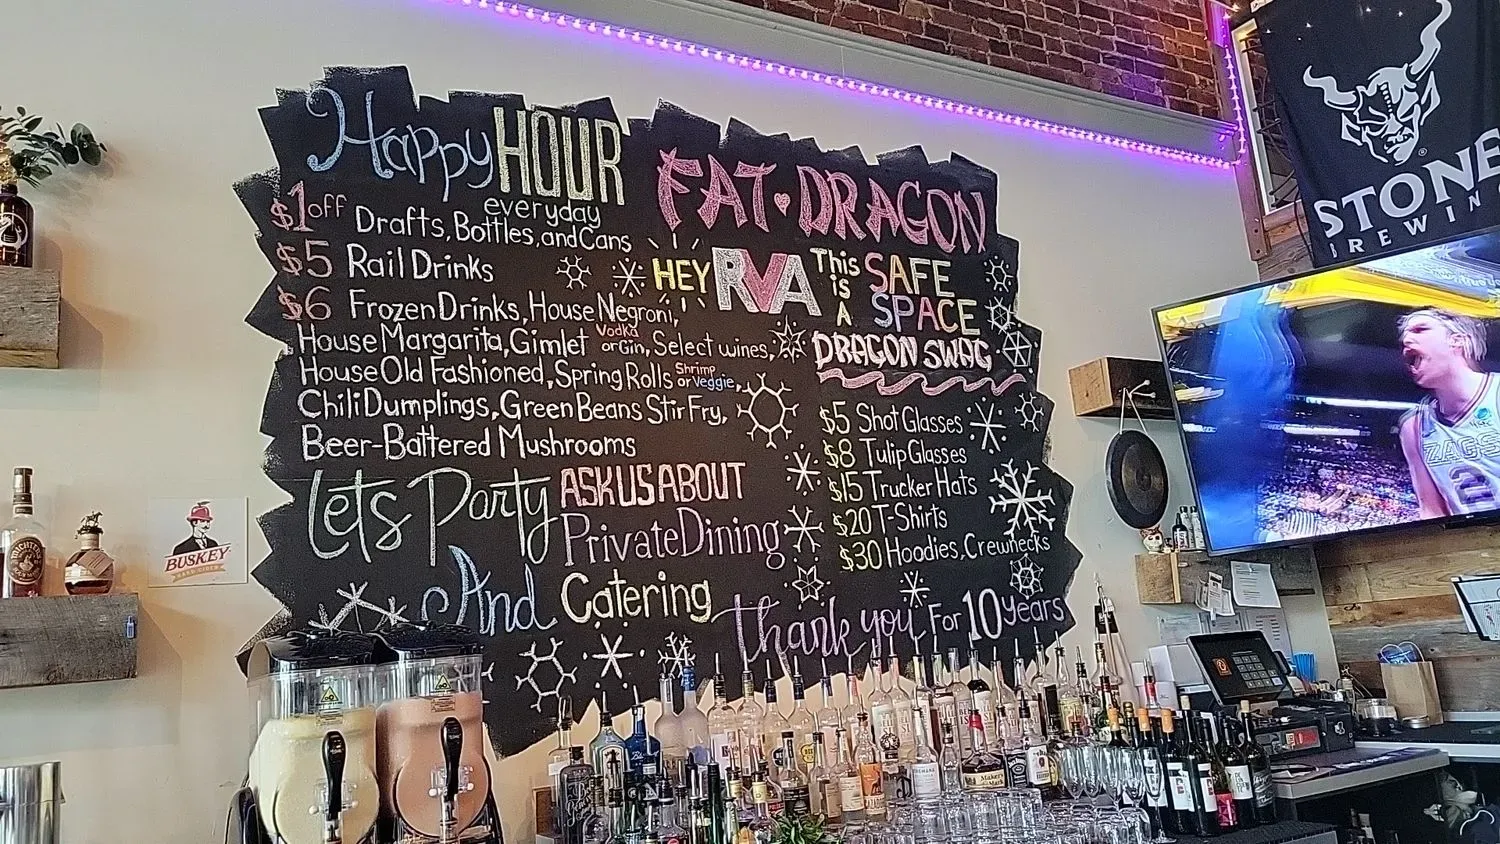 Happy HOUR
everyday
$1 off Drafts, Bottles, and Cans
$5 Rail Drinks
$6 Frozen Drinks, House Negroni,
House Margarita, Gimlet Vodka or Gin, Select wines,
House Old Fashioned, Spring Rolls Shrimp or Veggie,
Chili Dumplings, Green Beans Stir Fry,
Beer-Battered Mushrooms
Lets Party ASK US ABOUT
Private Dining
And Catering
FAT DRAGON
HEY RVA This is A SAFE SPACE
DRAGON SWAG
$5 Shot Glasses
$8 Tulip Glasses
$15 Trucker Hats
$20 T-Shirts
$30 Hoodies, Crewnecks
Thank you For 10 years
BUSKEY
HARD CIDER
STONE
BREWIN
ZAGS
2